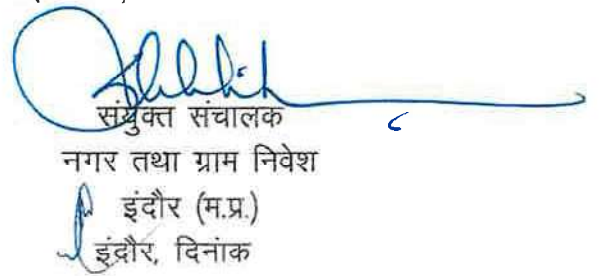 संयुक्त संचालक
नगर तथा ग्राम निवेश
इंदौर (म.प्र.)
इंदौर, दिनांक